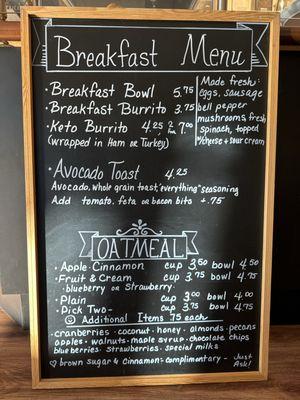 Breakfast Menu
· Breakfast Bowl 5.75
· Breakfast Burrito 3.75
· Keto Burrito 4.25 2 for 7.00
(wrapped in Ham or Turkey)
Made fresh:
eggs, sausage
bell pepper
mushrooms fresh
spinach, topped
w/cheese + sour cream
· Avocado Toast 4.25
Avocado, whole grain toast, "everything" seasoning
Add tomato, feta or bacon bits + .75
OATMEAL
· Apple-Cinnamon cup 3.50 bowl 4.50
· Fruit & Cream cup 3.75 bowl 4.75
· blueberry or Strawberry ·
· Plain cup 3.00 bowl 4.00
· Pick Two - cup 3.75 bowl 4.75
Additional Items .75 each
cranberries · coconut · honey · almonds · pecans
apples · walnuts · maple syrup · chocolate chips
blueberries · strawberries · special milks
♡ brown sugar & cinnamon - complimentary - Just Ask!